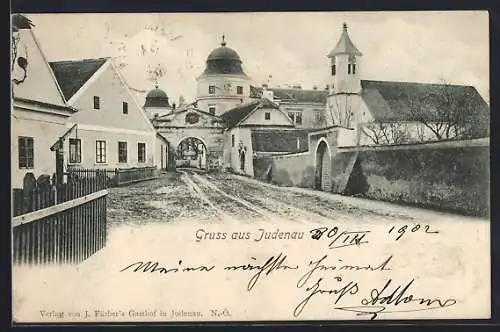 Gruss aus Judenau 30/IX 1902
Meine nächste Heimat
Gruß Adolf
Verlag von J. Füxber's Gasthof in Judenau. N.-Ö.